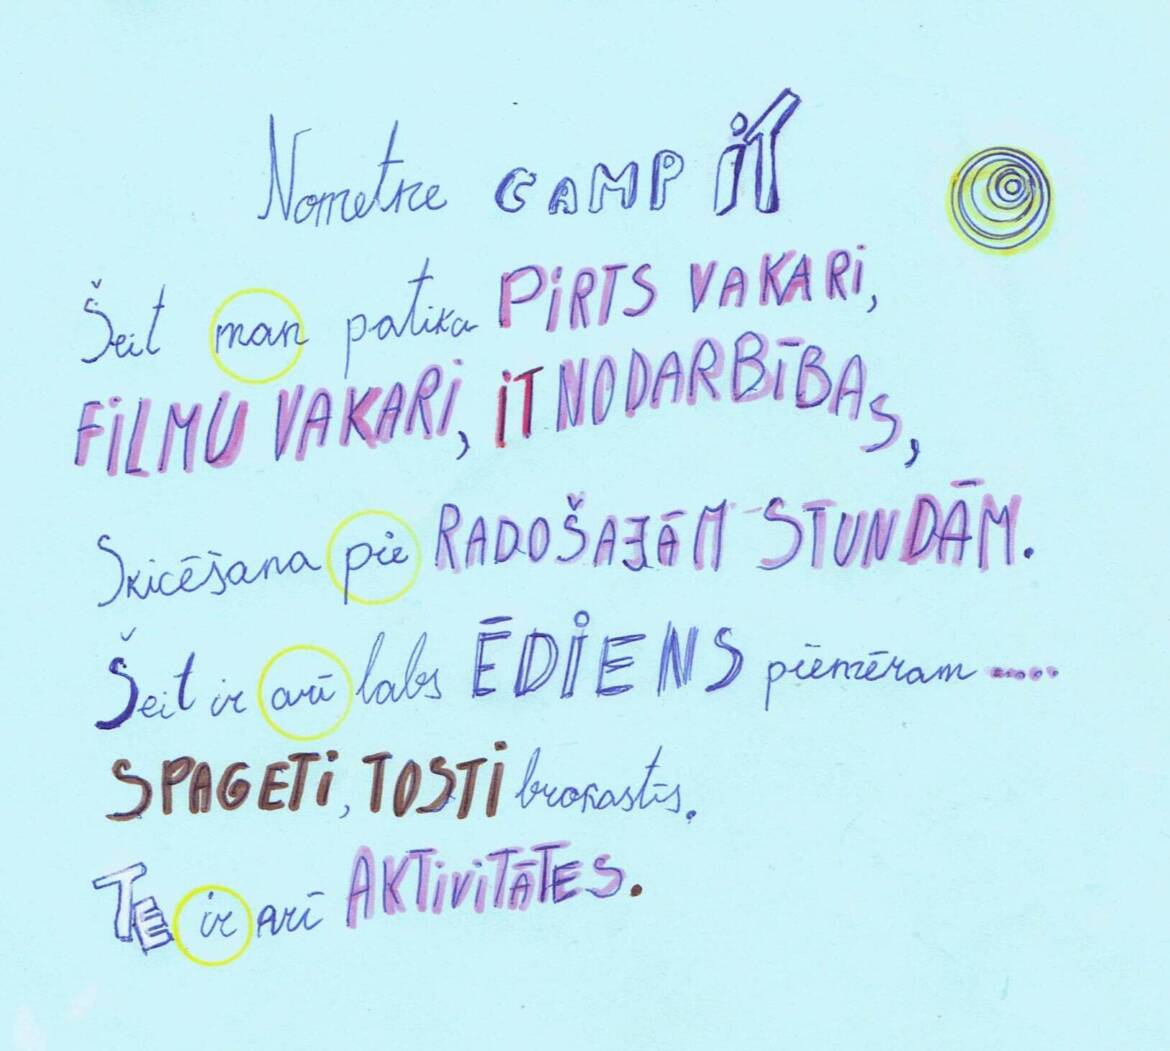 Nometne CAMP iT
Šeit man patika PiRTS VAKARi,
FiLMU VAKARi, iT NODARBĪBAS,
Skicēšana pie RADOŠAJĀM STUNDĀM.
Šeit ir arī labs ĒDiENS piemēram .....
SPAGETi, TOSTi brokastīs.
TE ir arī AKTiViTĀTES.